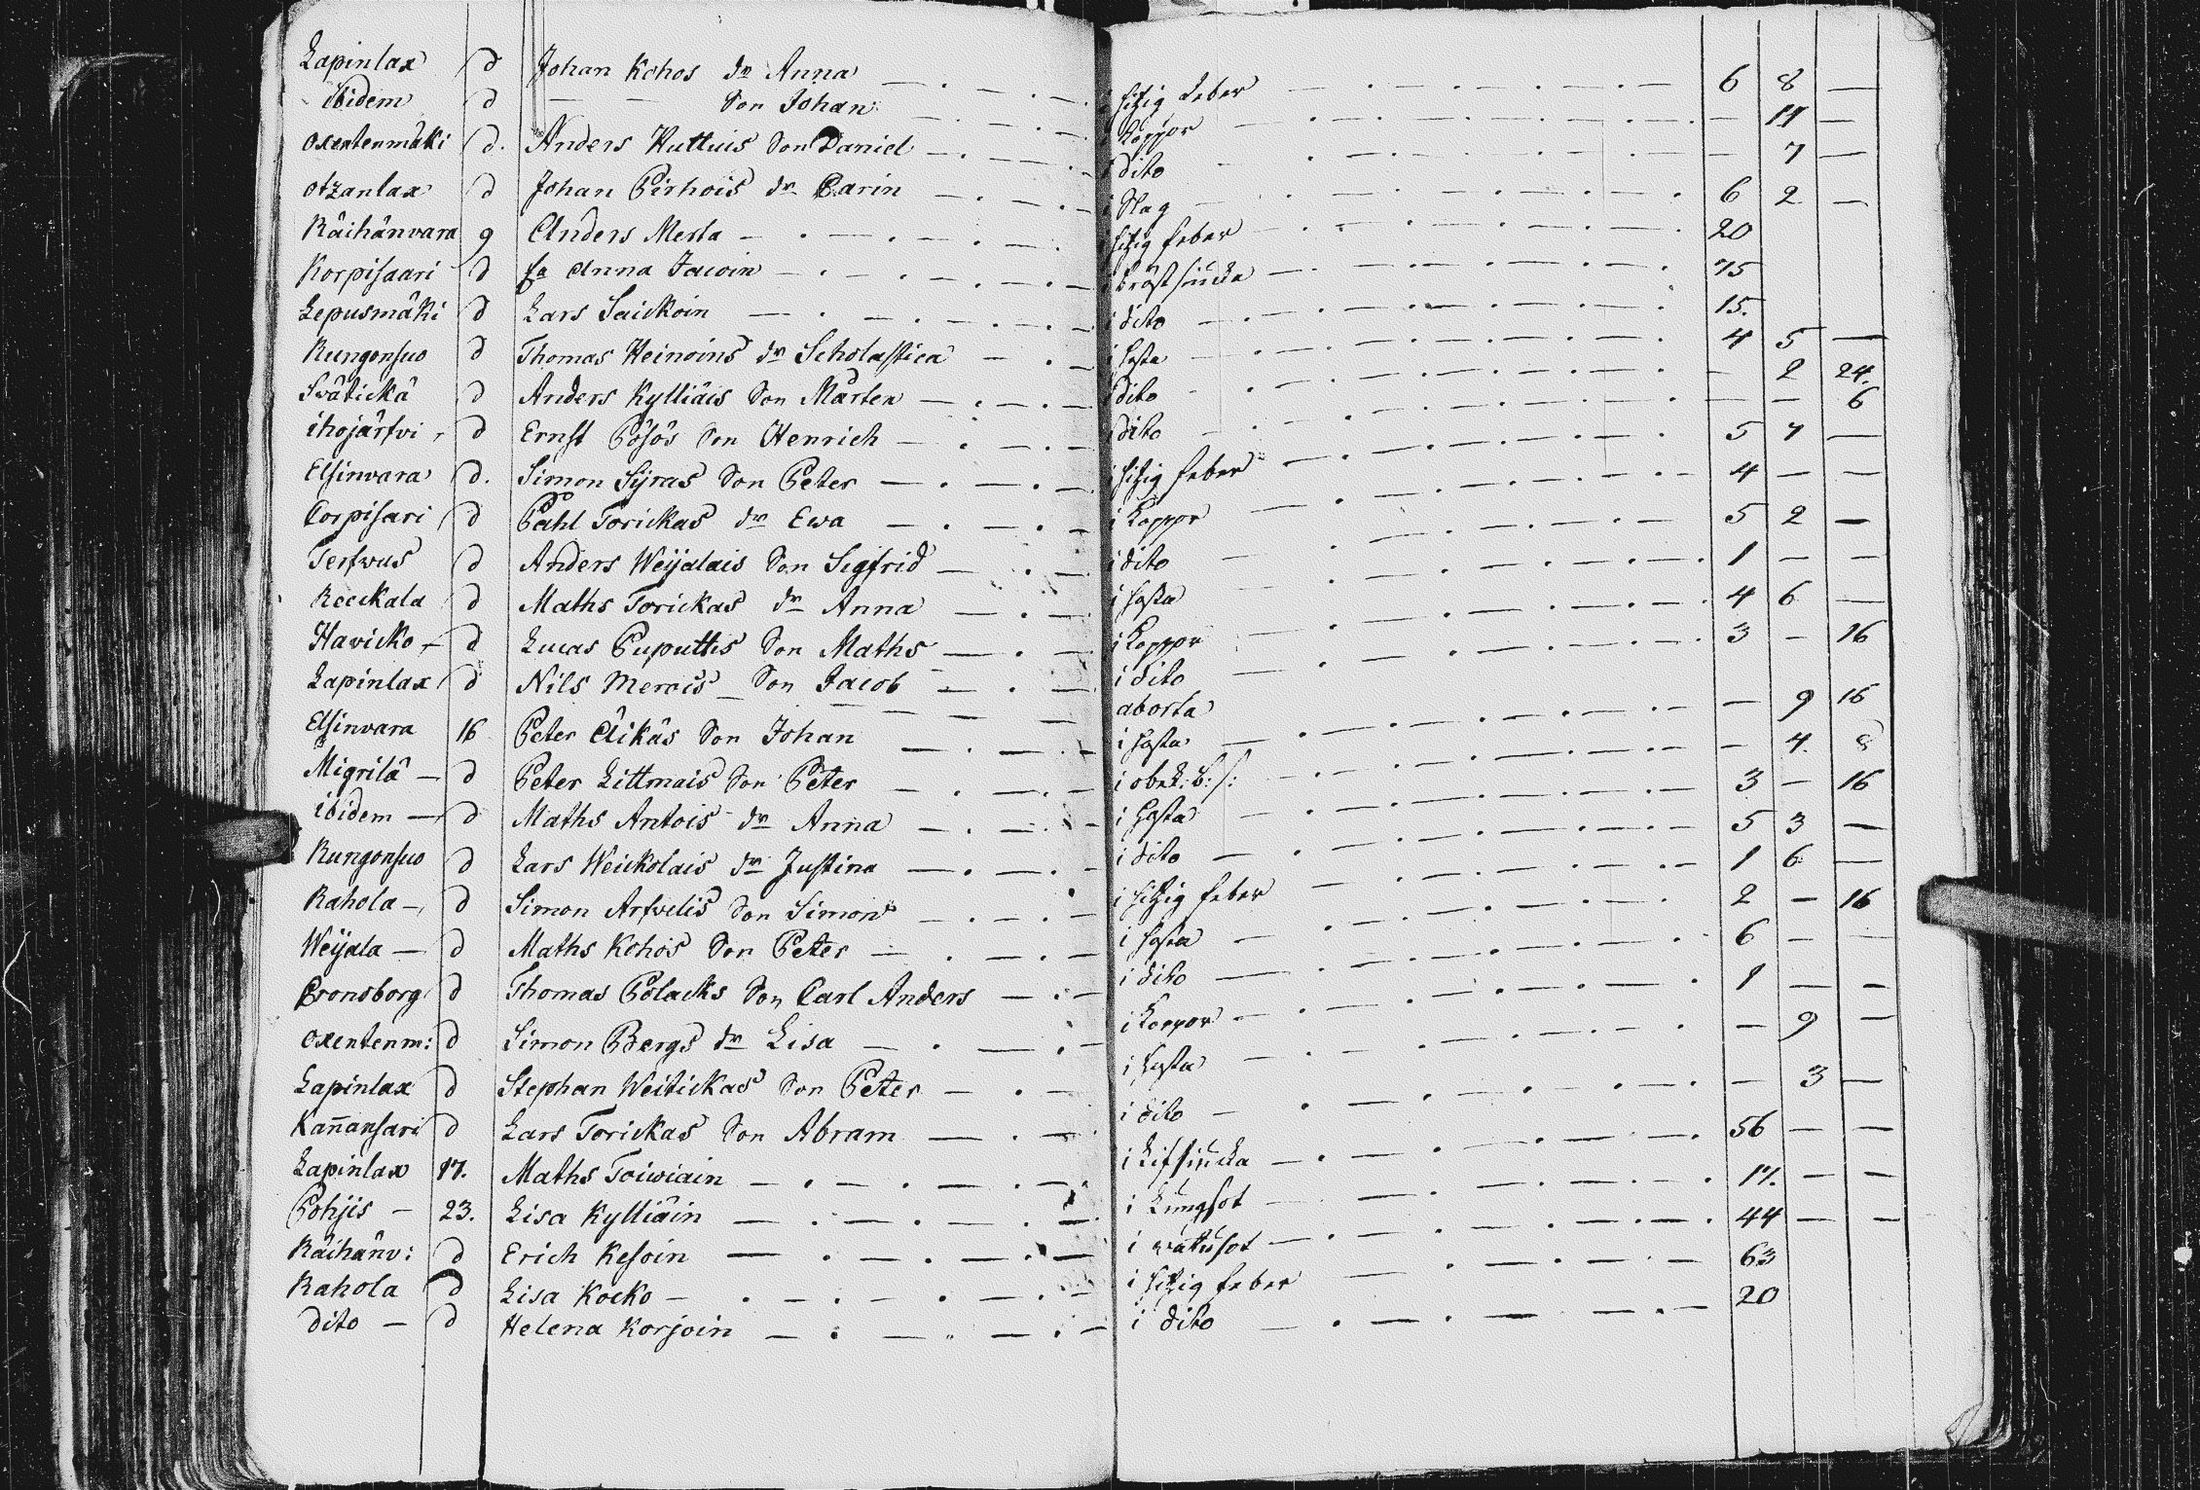 Lapinlax d Johan Kohos dr Anna i hitzig feber 6 8 —
ibidem d — — Son Johan i Koppor — 11 —
Oxentenmäki d. Anders Huttuis Son Daniel i dito — 7 —
Otzanlax d Johan Pirhois dr Carin i Slag 6 2 —
Räihänvara 9 Anders Mesta i hitzig feber 20
Korpisaari d Ea Anna Jawin i bröstsiucka 75
Lepusmäki d Lars Saickoin i dito 15.
Rungonsuo d Thomas Heinoins dr Scholastica i hosta 4 5 —
Swätickä d Anders Kylliäis Son Mårten i dito — 2 24
ihojärfvi d Ernst Pösös Son Henrich i dito — — 6
Elsinvara d. Simon Sÿras Son Peter i hitzig feber 5 7 —
Corpisari d Påhl Torickas dr Ewa i Koppor 4 — —
Terfwus d Anders Weijalais Son Sigfrid i dito 5 2 —
Reeckala d Maths Torickas dr Anna i hosta 1 — —
Hawicko d Lucas Puputtis Son Maths i Koppor 4 6 —
Lapinlax d Nils Merois Son Jacob i dito 3 — 16
aborta
Elsinvara 16 Peter Äikäs Son Johan i hosta — 9 16
Migrilä — d Peter Littmais Son Peter i obek: b: s: — 4. 8
ibidem — d Maths Antois dr Anna i hosta 3 — 16
Rungonsuo d Lars Weickolais dr Justina i dito 5 3 —
Rahola — d Simon Arfvelis Son Simon i hitzig feber 1 6 —
Weijala — d Maths Kohos Son Peter i hosta 2 — 16
Cronoborg d Thomas Polacks Son Carl Anders i dito 6 — —
Oxentenm: d Simon Bergs dr Lisa i Koppor 1 — —
Lapinlax d Stephan Weitickas Son Peter i hosta — 9 —
Kan̄ansari d Lars Torickas Son Abram i dito — 3 —
Lapinlax 17. Maths Toiwiain i Lifsiucka 56 — —
Pohjis — 23. Lisa Kylliäin i Lungsot 17. — —
Räihänv: d Erich Kesoin i wattusot 44 — —
Rahola d Lisa Kocko i hitzig feber 63
dito — d Helena Korjoin i dito 20